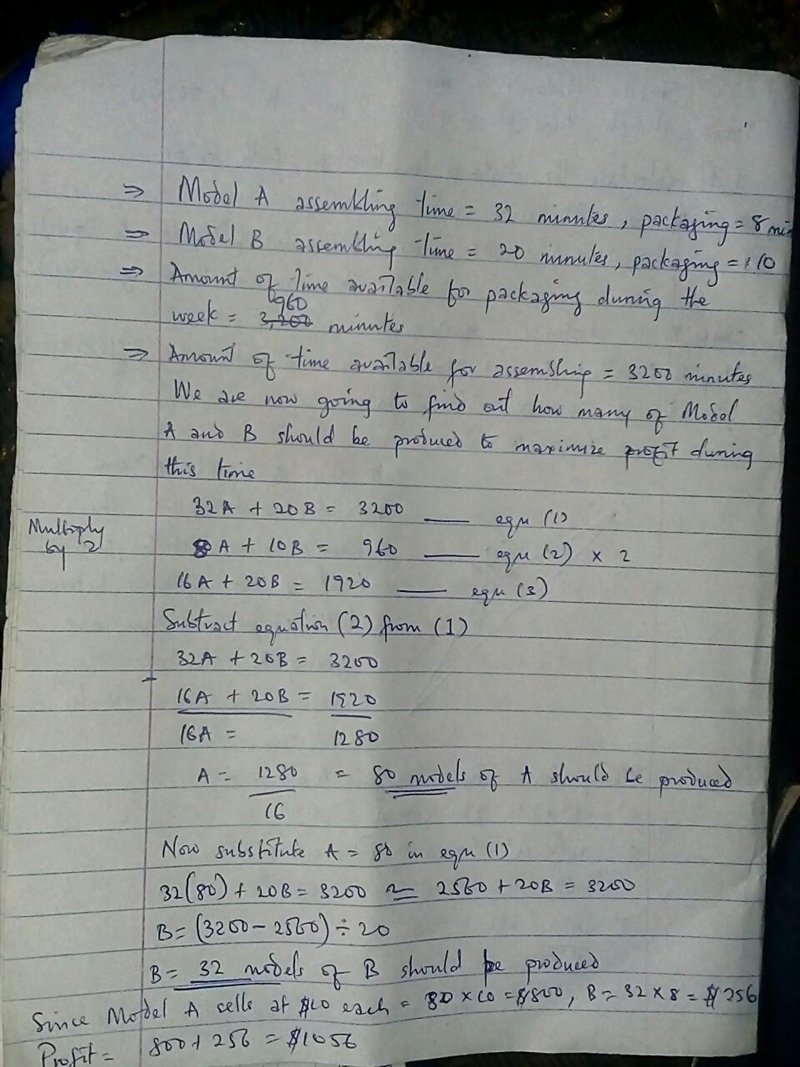 ⇒ Model A assembling time = 32 minutes, packaging = 8 min
⇒ Model B assembling time = 20 minutes, packaging = 10
⇒ Amount of time available for packaging during the
960
week = 3,200 minutes
⇒ Amount of time available for assembling = 3200 minutes
We are now going to find out how many of Model
A and B should be produced to maximize profit during
this time
32A + 20B = 3200 — equ (1)
Multiply by 2
8A + 10B = 960 — equ (2) x 2
16A + 20B = 1920 — equ (3)
Subtract equation (2) from (1)
32A + 20B = 3200
-
16A + 20B = 1920
16A = 1280
A = 1280 = 80 models of A should be produced
16
Now substitute A = 80 in equ (1)
32(80) + 20B = 3200 = 2560 + 20B = 3200
B = (3200 - 2560) ÷ 20
B = 32 models of B should be produced
Since Model A cells at $10 each = 80 x 10 = $800, B = 32 x 8 = $256
Profit = 800 + 256 = $1056